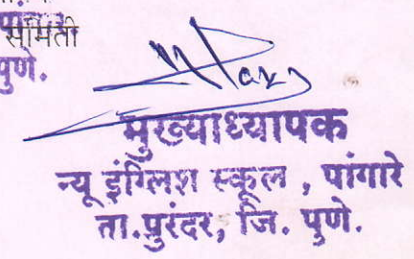 समिती
पुणे.
मुख्याध्यापक
न्यू इंग्लिश स्कूल , पांगारे
ता.पुरंदर, जि. पुणे.